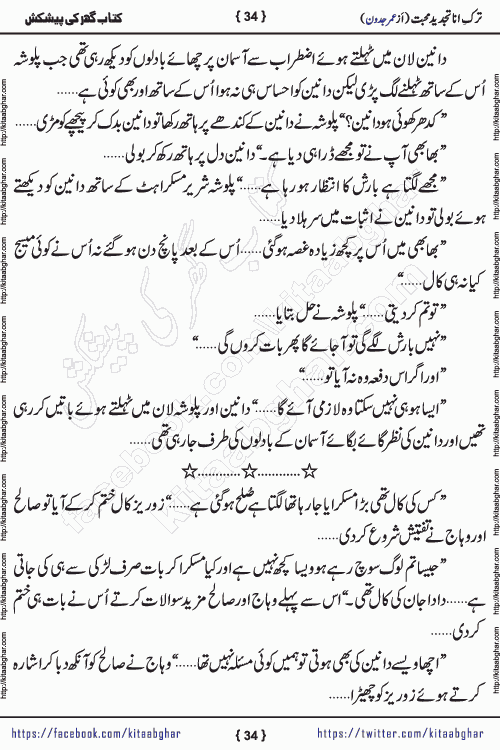 ترکِ انا تجدیدِ محبت (از عمر جدون) { 34 } کتاب گھر کی پیشکش
دانین لان میں ٹہلتے ہوئے اضطراب سے آسمان پر چھائے بادلوں کو دیکھ رہی تھی جب پلوشہ
اُس کے ساتھ ٹہلنے لگ پڑی لیکن دانین کو احساس ہی نہ ہوا اُس کے ساتھ اور بھی کوئی ہے......
”کدھر کھوئی ہو دانین؟“ پلوشہ نے دانین کے کندھے پر ہاتھ رکھا تو دانین بدک کر پیچھے کو مڑی......
”بھابھی آپ نے تو مجھے ڈرا ہی دیا ہے۔“ دانین دل پر ہاتھ رکھ کر بولی......
”مجھے لگتا ہے بارش کا انتظار ہو رہا ہے......“ پلوشہ شریر مسکراہٹ کے ساتھ دانین کو دیکھتے
ہوئے بولی تو دانین نے اثبات میں سر ہلا دیا......
”بھابھی میں اُس پر کچھ زیادہ غصہ ہو گئی...... اُس کے بعد پانچ دن ہو گئے نہ اُس نے کوئی میسج
کیا نہ ہی کال......“
”تو تم کر دیتی......“ پلوشہ نے حل بتایا......
”نہیں بارش لگے گی تو آ جائے گا پھر بات کروں گی......“
”اور اگر اس دفعہ وہ نہ آیا تو......“
”ایسا ہو ہی نہیں سکتا وہ لازمی آئے گا......“ دانین اور پلوشہ لان میں ٹہلتے ہوئے باتیں کر رہی
تھیں اور دانین کی نظر گائے بگائے آسمان کے بادلوں کی طرف جا رہی تھی......
☆............☆............☆
”کس کی کال تھی بڑا مسکرایا جا رہا تھا لگتا ہے صُلح ہو گئی ہے......“ زوریز کال ختم کر کے آیا تو صالح
اور وہاج نے تفتیش شروع کر دی......
”جیسا تم لوگ سوچ رہے ہو ویسا کچھ نہیں ہے اور کیا مسکرا کر بات صرف لڑکی سے ہی کی جاتی
ہے...... دادا جان کی کال تھی۔“ اس سے پہلے وہاج اور صالح مزید سوالات کرتے اُس نے بات ہی ختم
کر دی......
”اچھا ویسے دانین کی بھی ہوتی تو ہمیں کوئی مسئلہ نہیں تھا......“ وہاج نے صالح کو آنکھ دبا کر اشارہ
کرتے ہوئے زوریز کو چھیڑا......
https://facebook.com/kitaabghar { 34 } https://twitter.com/kitaabghar
http://kitaabghar.com